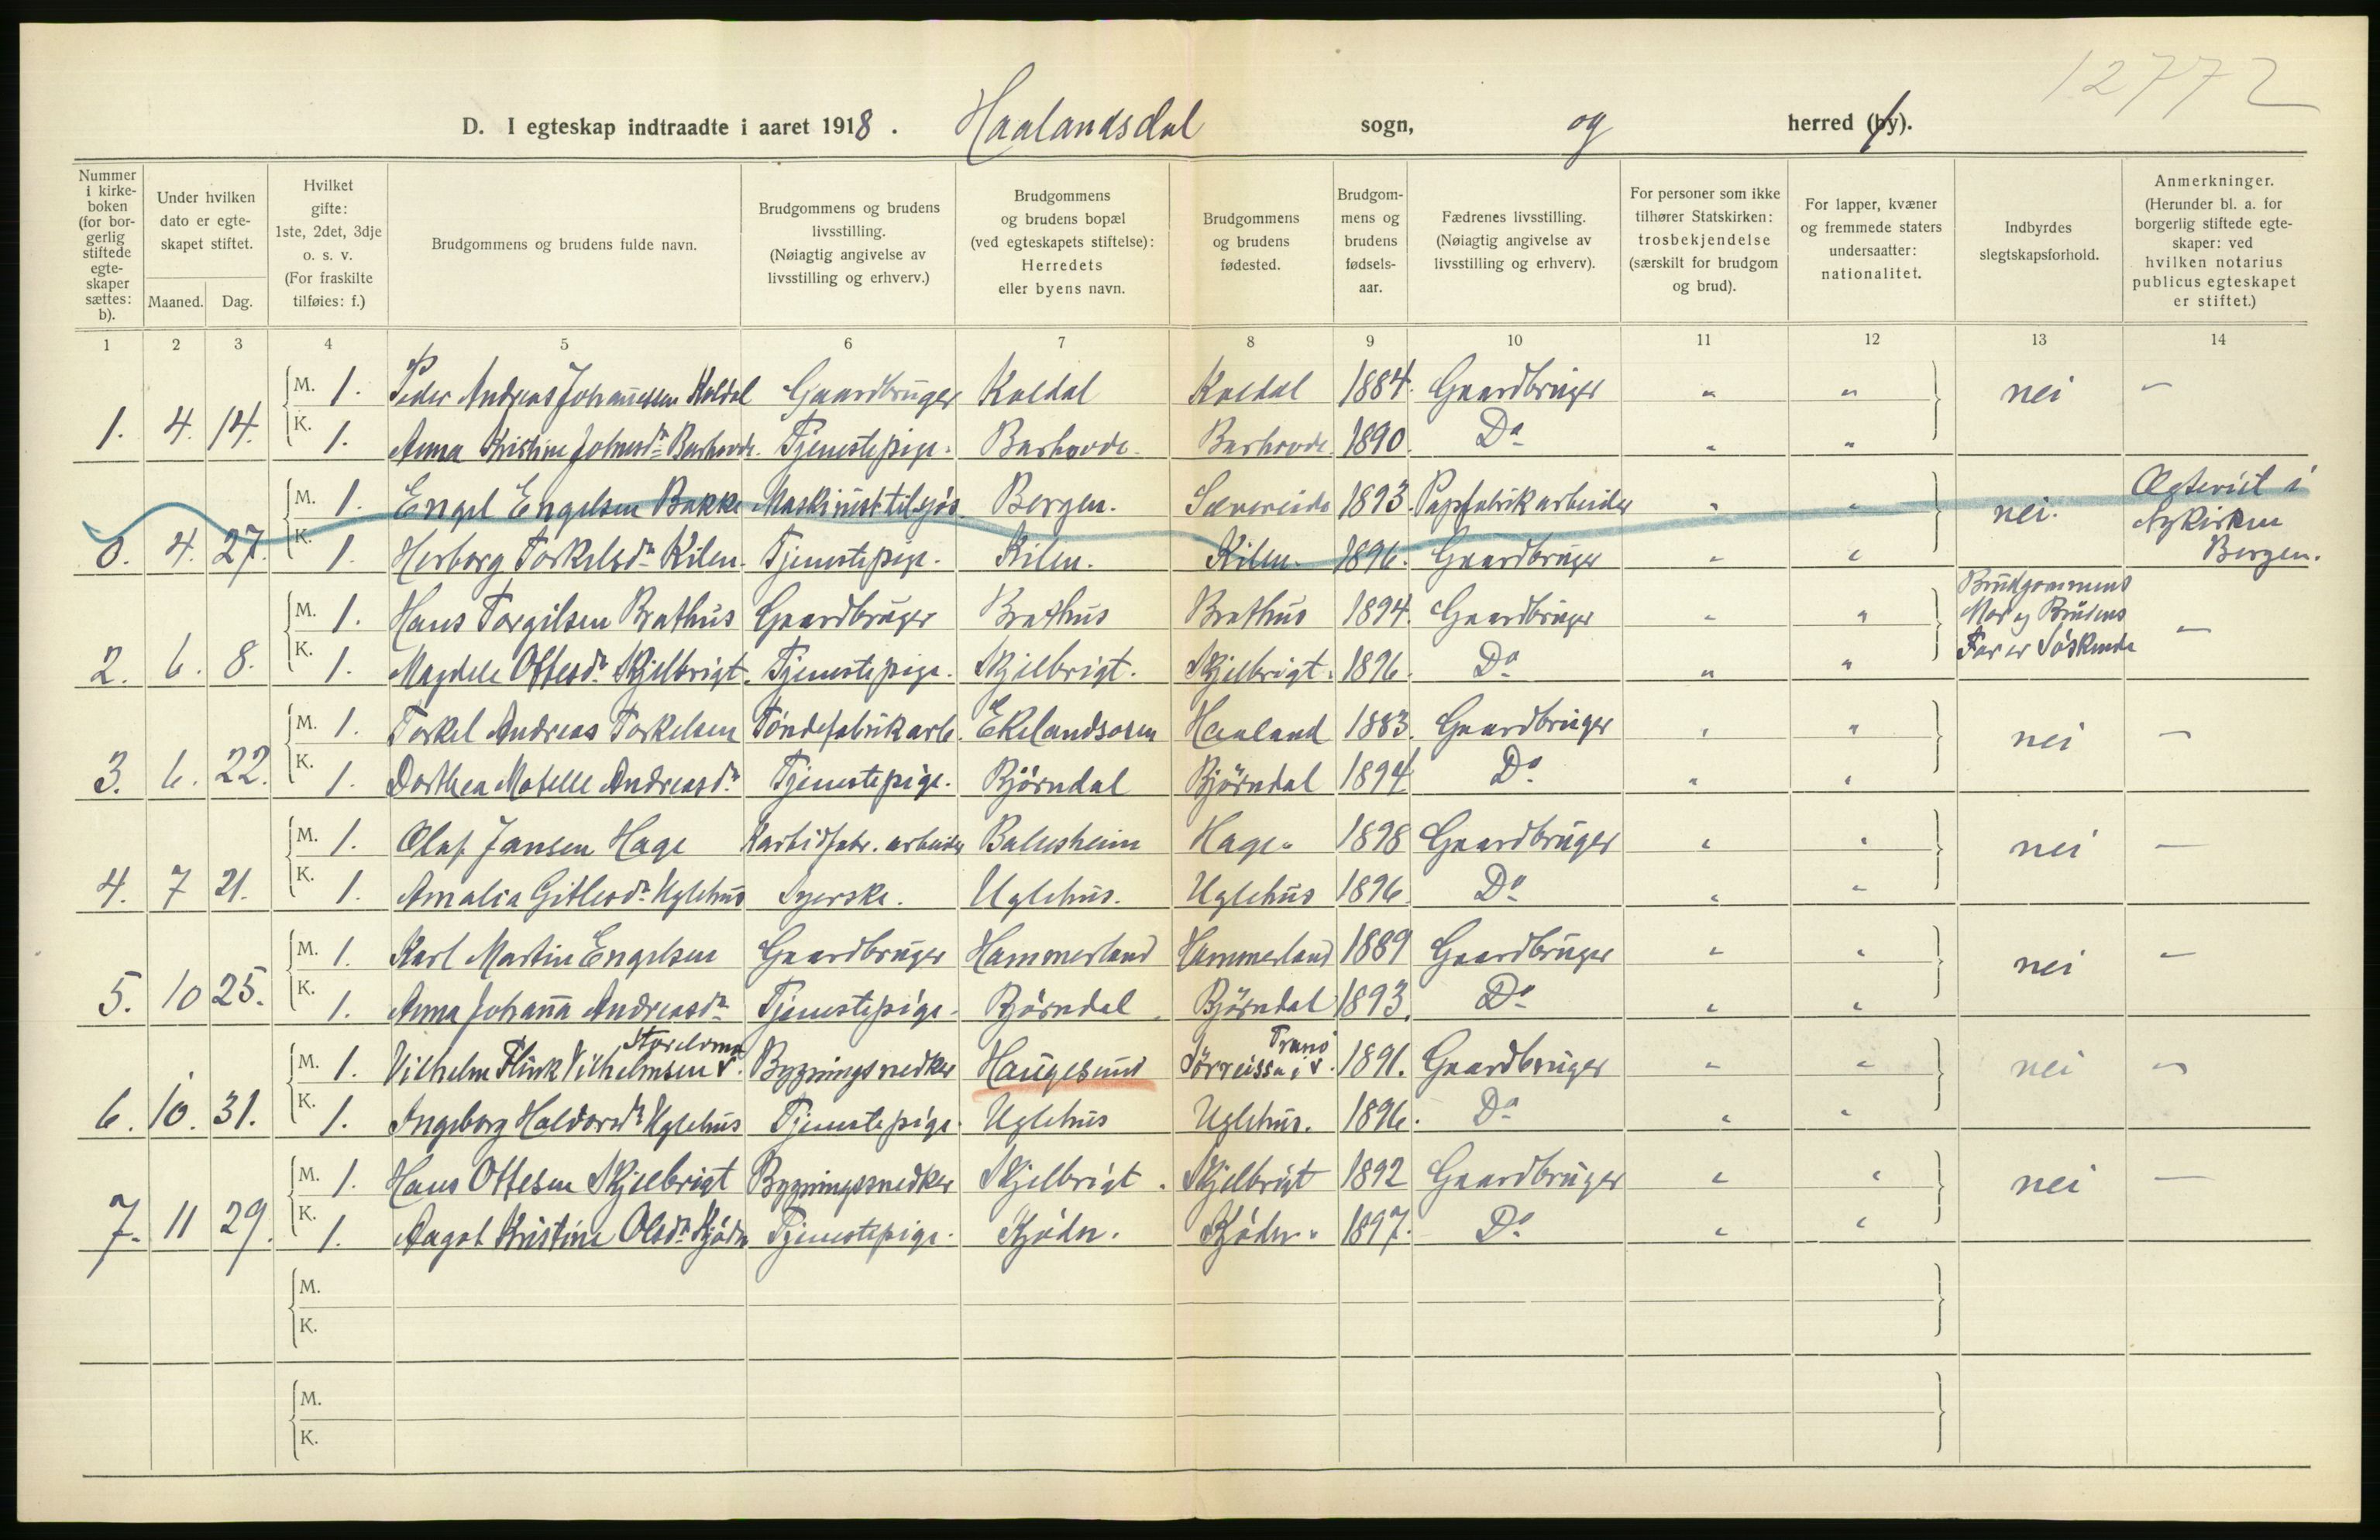 12772
D. I egteskap indtraadte i aaret 1918. Haalandsdal sogn, og herred (by).
Nummer i kirkeboken (for borgerlig stiftede egteskaper sættes: b).
Under hvilken dato er egteskapet stiftet.
Maaned. Dag.
Hvilket gifte: 1ste, 2det, 3dje o. s. v. (For fraskilte tilføies: f.)
Brudgommens og brudens fulde navn.
Brudgommens og brudens livsstilling. (Nøiagtig angivelse av livsstilling og erhverv.)
Brudgommens og brudens bopæl (ved egteskapets stiftelse): Herredets eller byens navn.
Brudgommens og brudens fødested.
Brudgommens og brudens fødselsaar.
Fædrenes livsstilling. (Nøiagtig angivelse av livsstilling og erhverv).
For personer som ikke tilhører Statskirken: trosbekjendelse (særskilt for brudgom og brud).
For lapper, kvæner og fremmede staters undersaatter: nationalitet.
Indbyrdes slegtskapsforhold.
Anmerkninger. (Herunder bl. a. for borgerlig stiftede egteskaper: ved hvilken notarius publicus egteskapet er stiftet.)
1 2 3 4 5 6 7 8 9 10 11 12 13 14
M. 1. Peder Andreas Johannessen Koldal Gaardbruger Koldal Koldal 1884. Gaardbruger " " nei —
1. 4. 14. K. 1. Anna Kristine Johnesdr. Barhovde. Tjenestepige. Barhovde. Barhovde. 1890. Do " "
M. 1. Engel Engelsen Bakke Maskinist tilsjøs. Bergen. Sævereide 1893. Papfabrikarbeider " " nei. Ægteviet i Nykirken Bergen.
0. 4. 27. K. 1. Herborg Torkelsdr. Kilen. Tjenestepige. Kilen. Kilen. 1896. Gaardbruger " "
M. 1. Hans Torgilsen Brathus Gaardbruger Brathus Brathus 1894. Gaardbruger " " Brudgommens Mor og Brudens Far er Søskende —
2. 6. 8. K. 1. Magdele Ottesdr. Skjelbrigt. Tjenestepige. Skjelbrigt. Skjelbrigt. 1896. Do " "
M. 1. Torkel Andreas Torkelsen Tøndefabrikarb. Ekelandsosen Haaland 1883. Gaardbruger " " nei —
3. 6. 22. K. 1. Dorthea Matelle Andreasdr. Tjenestepige. Bjørndal Bjørndal 1894 Do " "
M. 1. Olaf Jansen Hage Karbidfabr. arbeider Balesheim Hage. 1898 Gaardbruger " " nei —
4. 7 21. K. 1. Amalia Gitlesdr. Uglehus Syerske. Uglehus. Uglehus 1896. Do " "
M. 1. Karl Martin Engelsen Gaardbruger Hammerland Hammerland 1889 Gaardbruger " " nei —
5. 10 25. K. 1. Anna Johanna Andreasdr. Tjenestepige. Bjørndal. Bjørndal 1893. Do " "
M. 1. Vilhelm Flink Vilhelmsen Bygningsnedker Haugesund Sørreissa, Troms 1891. Gaardbruger " " nei —
6. 10. 31. K. 1. Ingeborg Haldorsdr. Uglehus Tjenestepige. Uglehus Uglehus. 1896. Do " "
M. 1. Hans Ottesen Skjelbrigt Bygningssnedker Skjelbrigt. Skjelbrigt 1892 Gaardbruger " " nei —
7. 11 29. K. 1. Aagot Kristine Olsdr. Kjødn Tjenestepige. Kjødn. Kjødn. 1897. Do " "
M.
K.
M.
K.